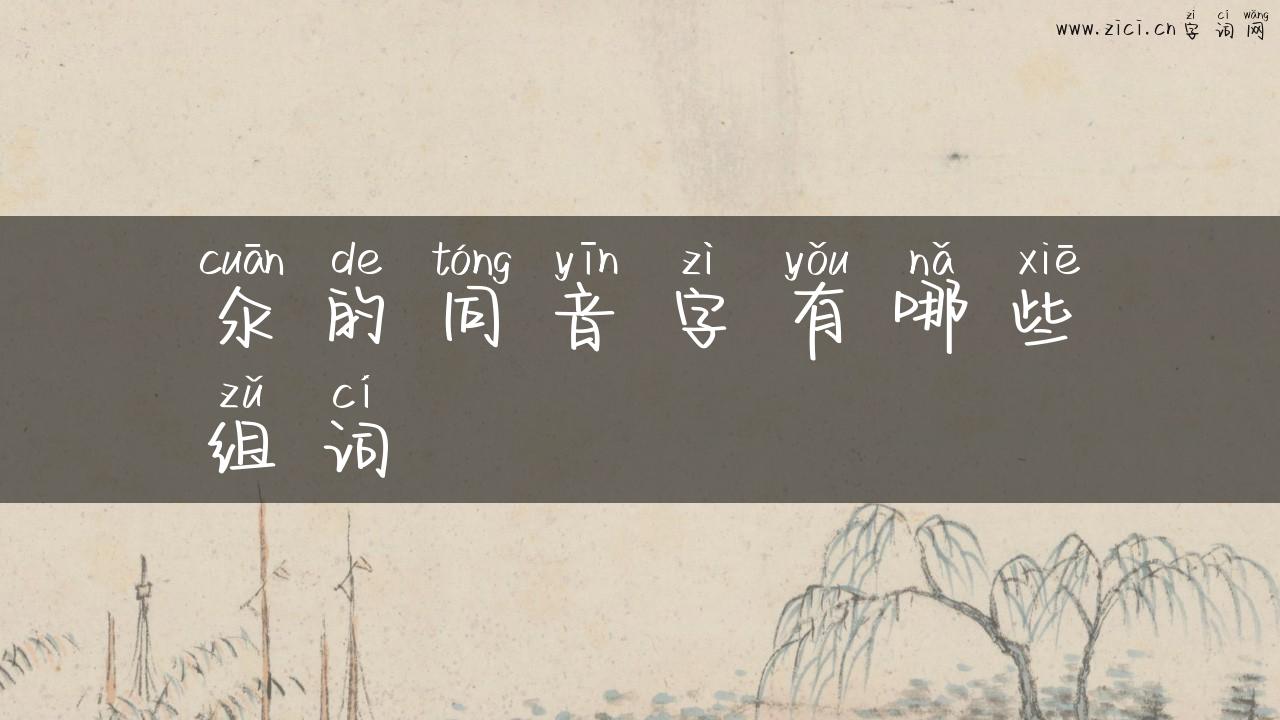 zì cí wǎng
www.zici.cn 字 词 网
cuān de tóng yīn zì yǒu nǎ xiē
汆 的 同 音 字 有 哪 些
zǔ cí
组 词